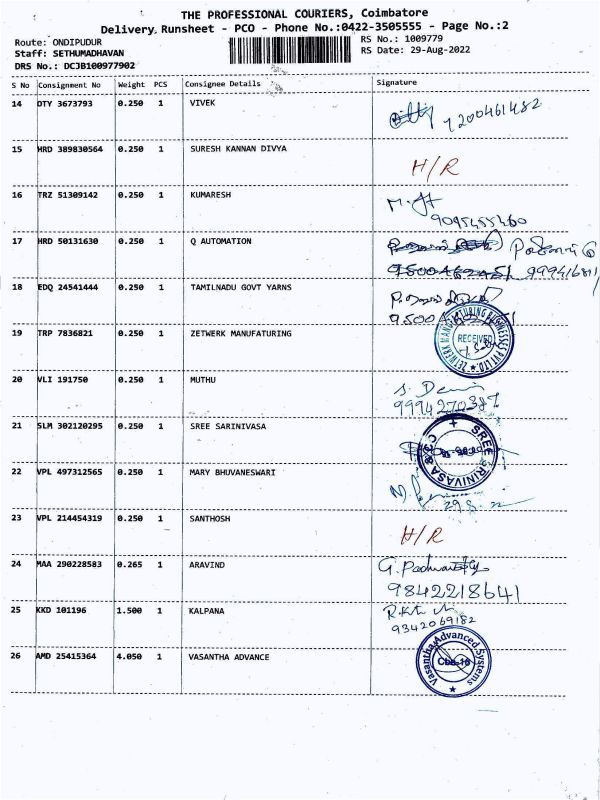 THE PROFESSIONAL COURIERS, Coimbatore
Delivery Runsheet - PCO - Phone No.:0422-3505555 - Page No.:2
Route: ONDIPUDUR RS No.: 1009779
Staff: SETHUMADHAVAN RS Date: 29-Aug-2022
DRS No.: DCJB100977902
S No Consignment No Weight PCS Consignee Details Signature
14 DTY 3673793 0.250 1 VIVEK
7200461482
15 HRD 389830564 0.250 1 SURESH KANNAN DIVYA
H/R
16 TRZ 51309142 0.250 1 KUMARESH
9095455460
17 HRD 50131630 0.250 1 Q AUTOMATION
18 EDQ 24541444 0.250 1 TAMILNADU GOVT YARNS
19 TRP 7836821 0.250 1 ZETWERK MANUFATURING
ZETWERK MANUFACTURING BUSINESSES PVT LTD
RECEIVED
20 VLI 191750 0.250 1 MUTHU
9994270387
21 SLM 302120295 0.250 1 SREE SARINIVASA
SREE SRINIVASA
22 VPL 497312565 0.250 1 MARY BHUVANESWARI
29.8.22
23 VPL 214454319 0.250 1 SANTHOSH
H/R
24 MAA 290228583 0.265 1 ARAVIND
9842218641
25 KKD 101196 1.500 1 KALPANA
9342069182
26 AMD 25415364 4.050 1 VASANTHA ADVANCE
Vasantha Advanced Systems
Cbe-16